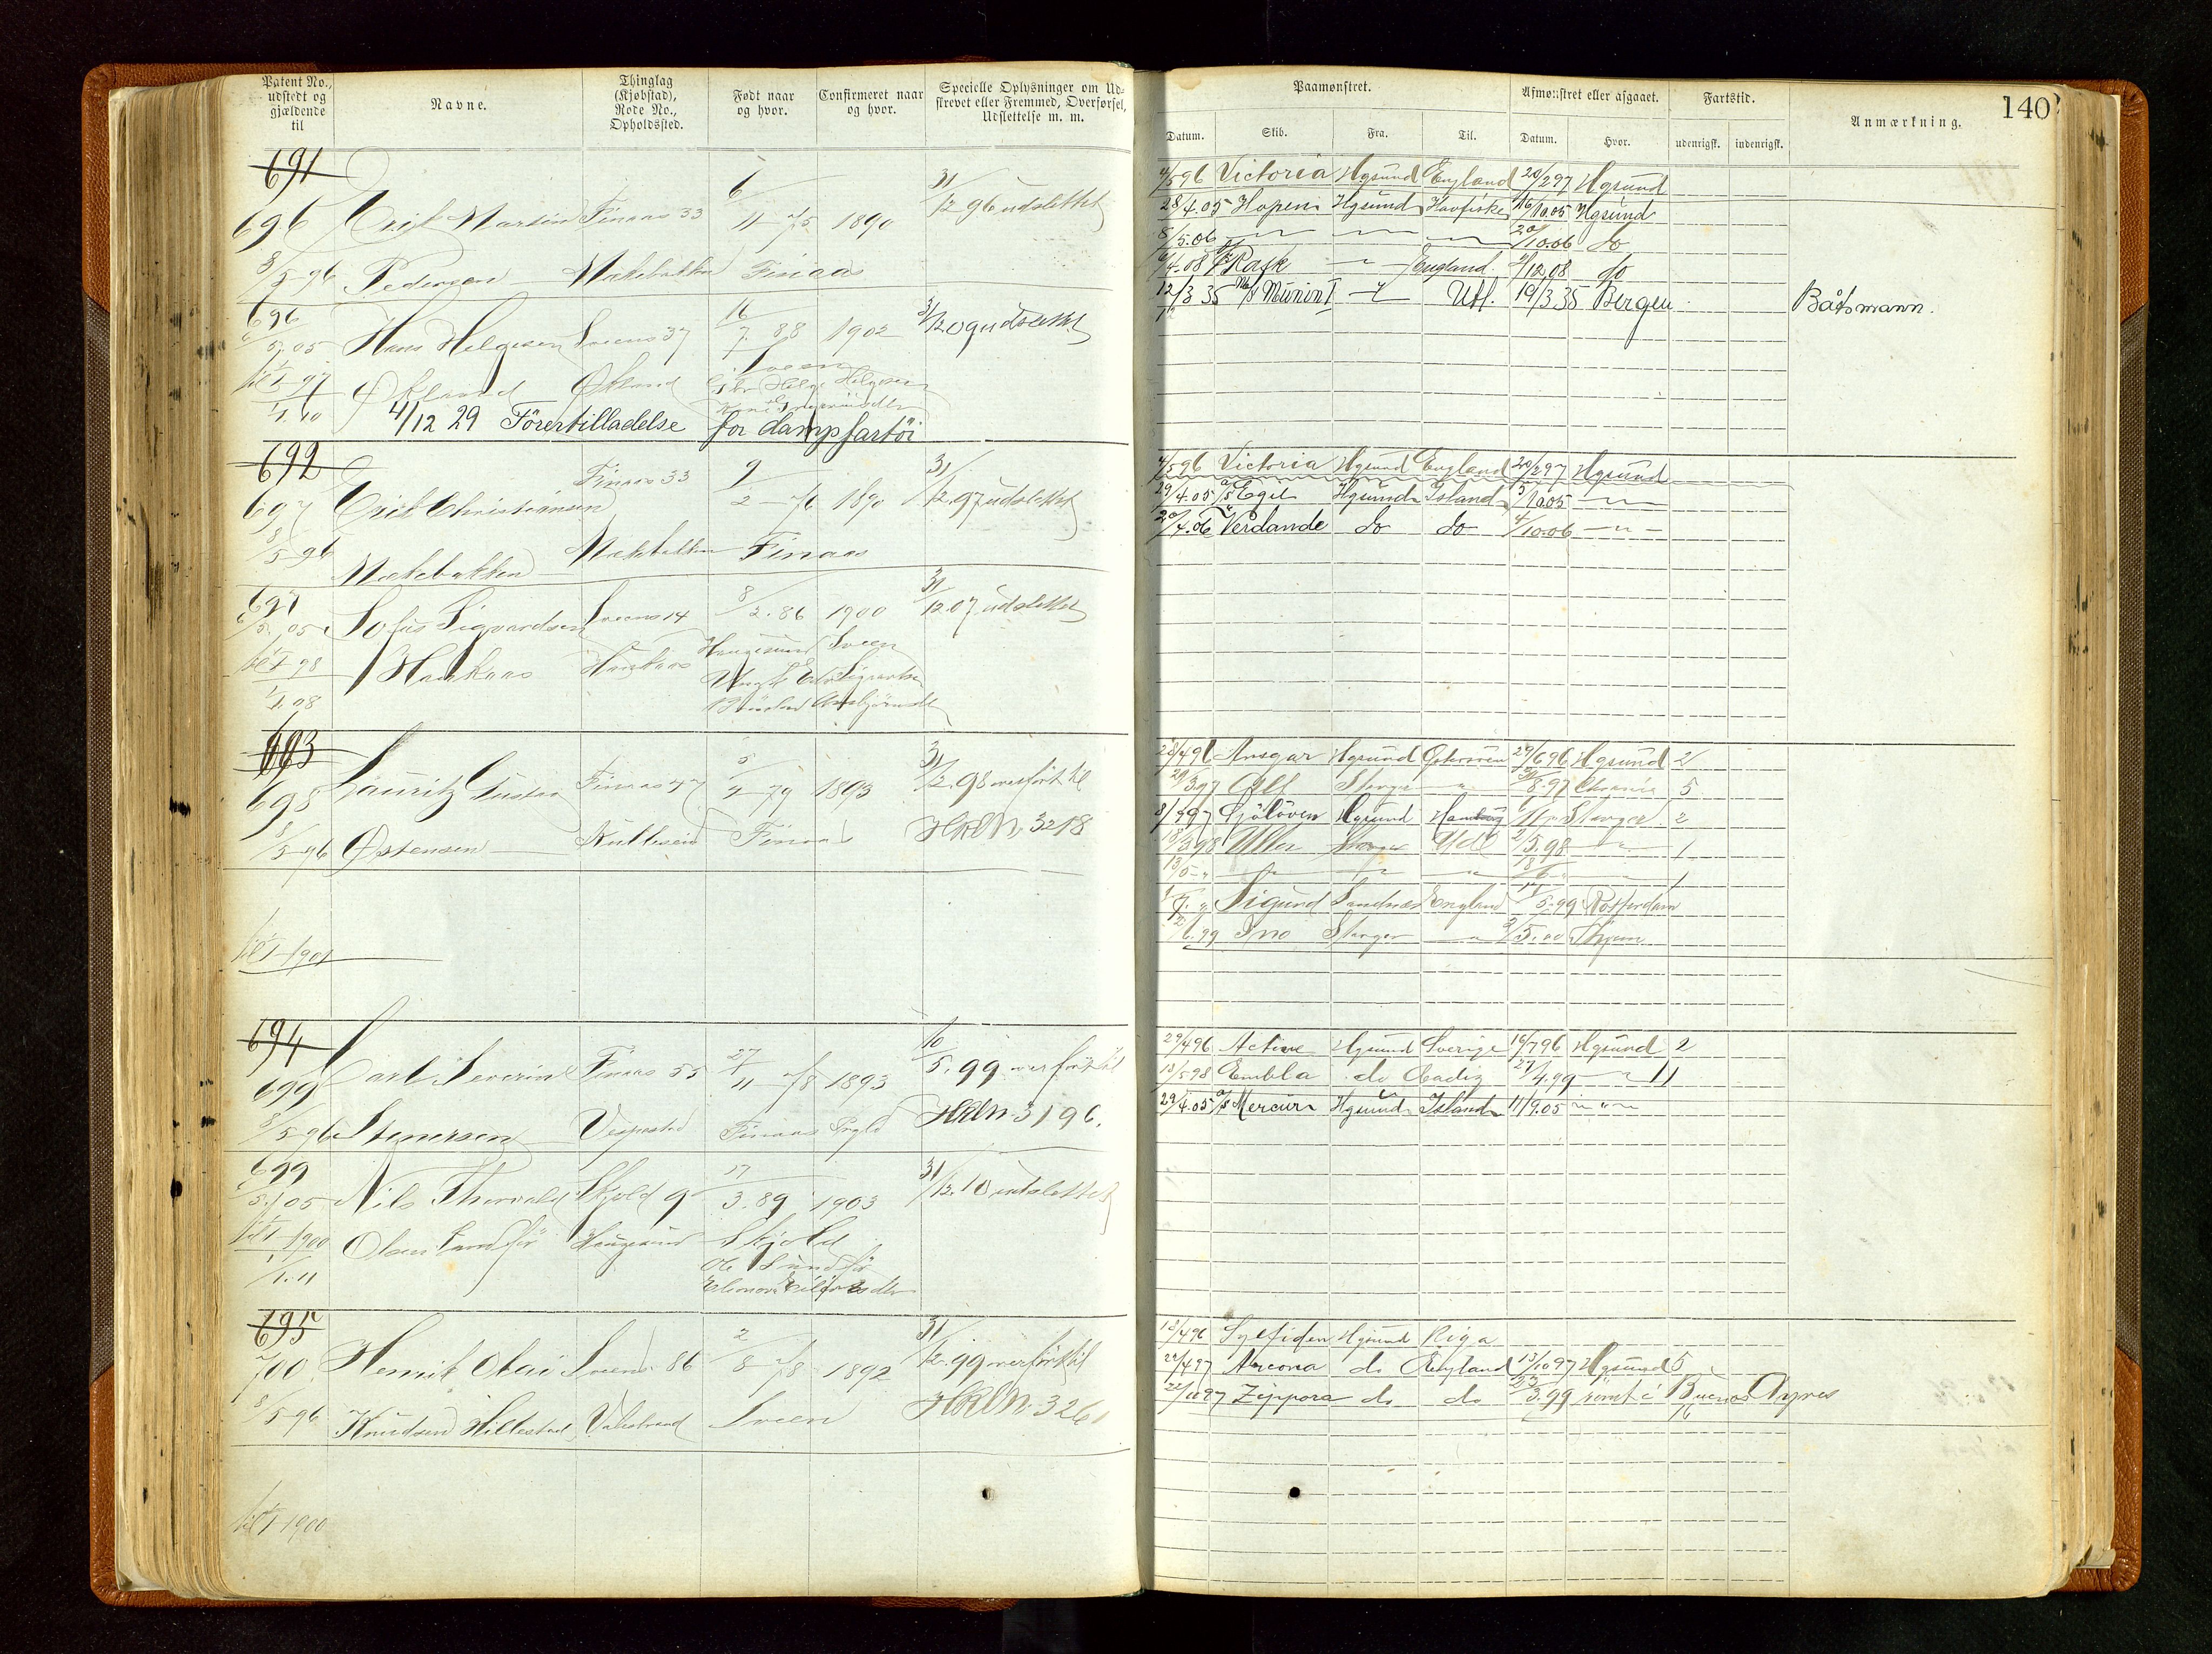 Patent No., udstedt og gjældende til
Navne.
Thinglag (Kjøbstad), Rode No., Opholdssted.
Født naar og hvor.
Confirmeret naar og hvor.
Specielle Oplysninger om Udskrevet eller Fremmed, Overførsel, Udslettelse m. m.
691
696 Erik Martin Finaas 33 6/11 75 1890 31/12 96 udslettet
8/5 96 Pedersen Mækebakken Finaas
696 Hans Helgesen Sveens 37 16/7. 88 1902 31/12 09 udslettet
5/5.05 Økland Økland Sveen
til 1/1 97 Helge Helgesen
1/1.10
4/12 29 Førertilladelse for dampfartøi
692 Finaas 33 9/2 76 1890 31/12.97 udslettet
697 Erik Christiansen
8/5 96 Mækebakken Mækebakken Finaas
697 Sofus Sigvardsen Sveens 14 8/2.86 1900 31/12.07 udslettet
5/5.05 Haukaas Haukaas Haugesund Sveen
til 1/1 98
1/1.08
693
698 Lauritz Gustav Finaas 47 5/9 79 1893 31/12.98 overført til
8/5 96 Østensen Kulleseid Finaas HRLN. 3218
til 1/1 1901
694
699 Carl Severin Finaas 55 27/11 78 1893 10/5.99 overført til
8/5 96 Stenersen Vespestad Finaas HRLN. 3196.
699 Nils Thorvald Skjold 9 17/3.89 1903 31/12.10 udslettet
5/5.05 Olsen Haugesund Skjold
til 1/1 1900
1/1.11
695
700 Henrik Olai Sveens 86 2/8 78 1892 31/12.99 overført til
8/5 96 Knudsen Hillestad Valestrand Sveen HRLN. 3261
til 1/1 1900
140
Paamønstret.
Afmønstret eller afgaaet.
Fartstid.
Anmærkning.
Datum. Skib. Fra. Til. Datum. Hvor. udenrigsk. indenrigsk.
4/5 96 Victoria Hgsund England 20/2 97 Hgsund
28/4.05 Hopen Hgsund Havfiske 16/10.05 Hgsund
8/5.06 — " — — " — — " — 20/10.06 do
6/4.08 Rask — " — England 4/12 08 do
12/3 35 M/S Munin I — " — Utl. 19/3 35 Bergen Båtsmann.
4/5 96 Victoria Hgsund England 20/2 97 Hgsund
29/4.05 a/s Egil Hgsund Island 3/10.05 — " —
20/4.06 Verdande do do 4/10.06 — " —
28/4 96 Ansgar Hgsund Østersøen 29/6 96 Hgsund 2
29/3 97 Alf Stavger 30/8.97 5
8/9 97 Sjøløven Hgsund Hamburg Stavger 2
18/3 98 Uller Stavger Udl 2/5.98 — " — 1
13/5 " — " — — " — — " — 18/6 1
Sigund Sandnæs England 17/5.99 Rotterdam
2/6.99 Ino Stavger — " — 3/5.00
29/4 96 Active Hgsund Sverige 16/7 96 Hgsund 2
13/5 98 Embla do Cadiz 27/4.99 — " — 11
29/4.05 a/s Mercur Hgsund Island 11/9.05 — " —
18/4 96 Sylfiden Hgsund Riga
22/4 97 Ancona do England 13/10 97 Hgsund 5
22/10 97 Zippora do do 23/3.99 rømt i Buenos Ayres
16